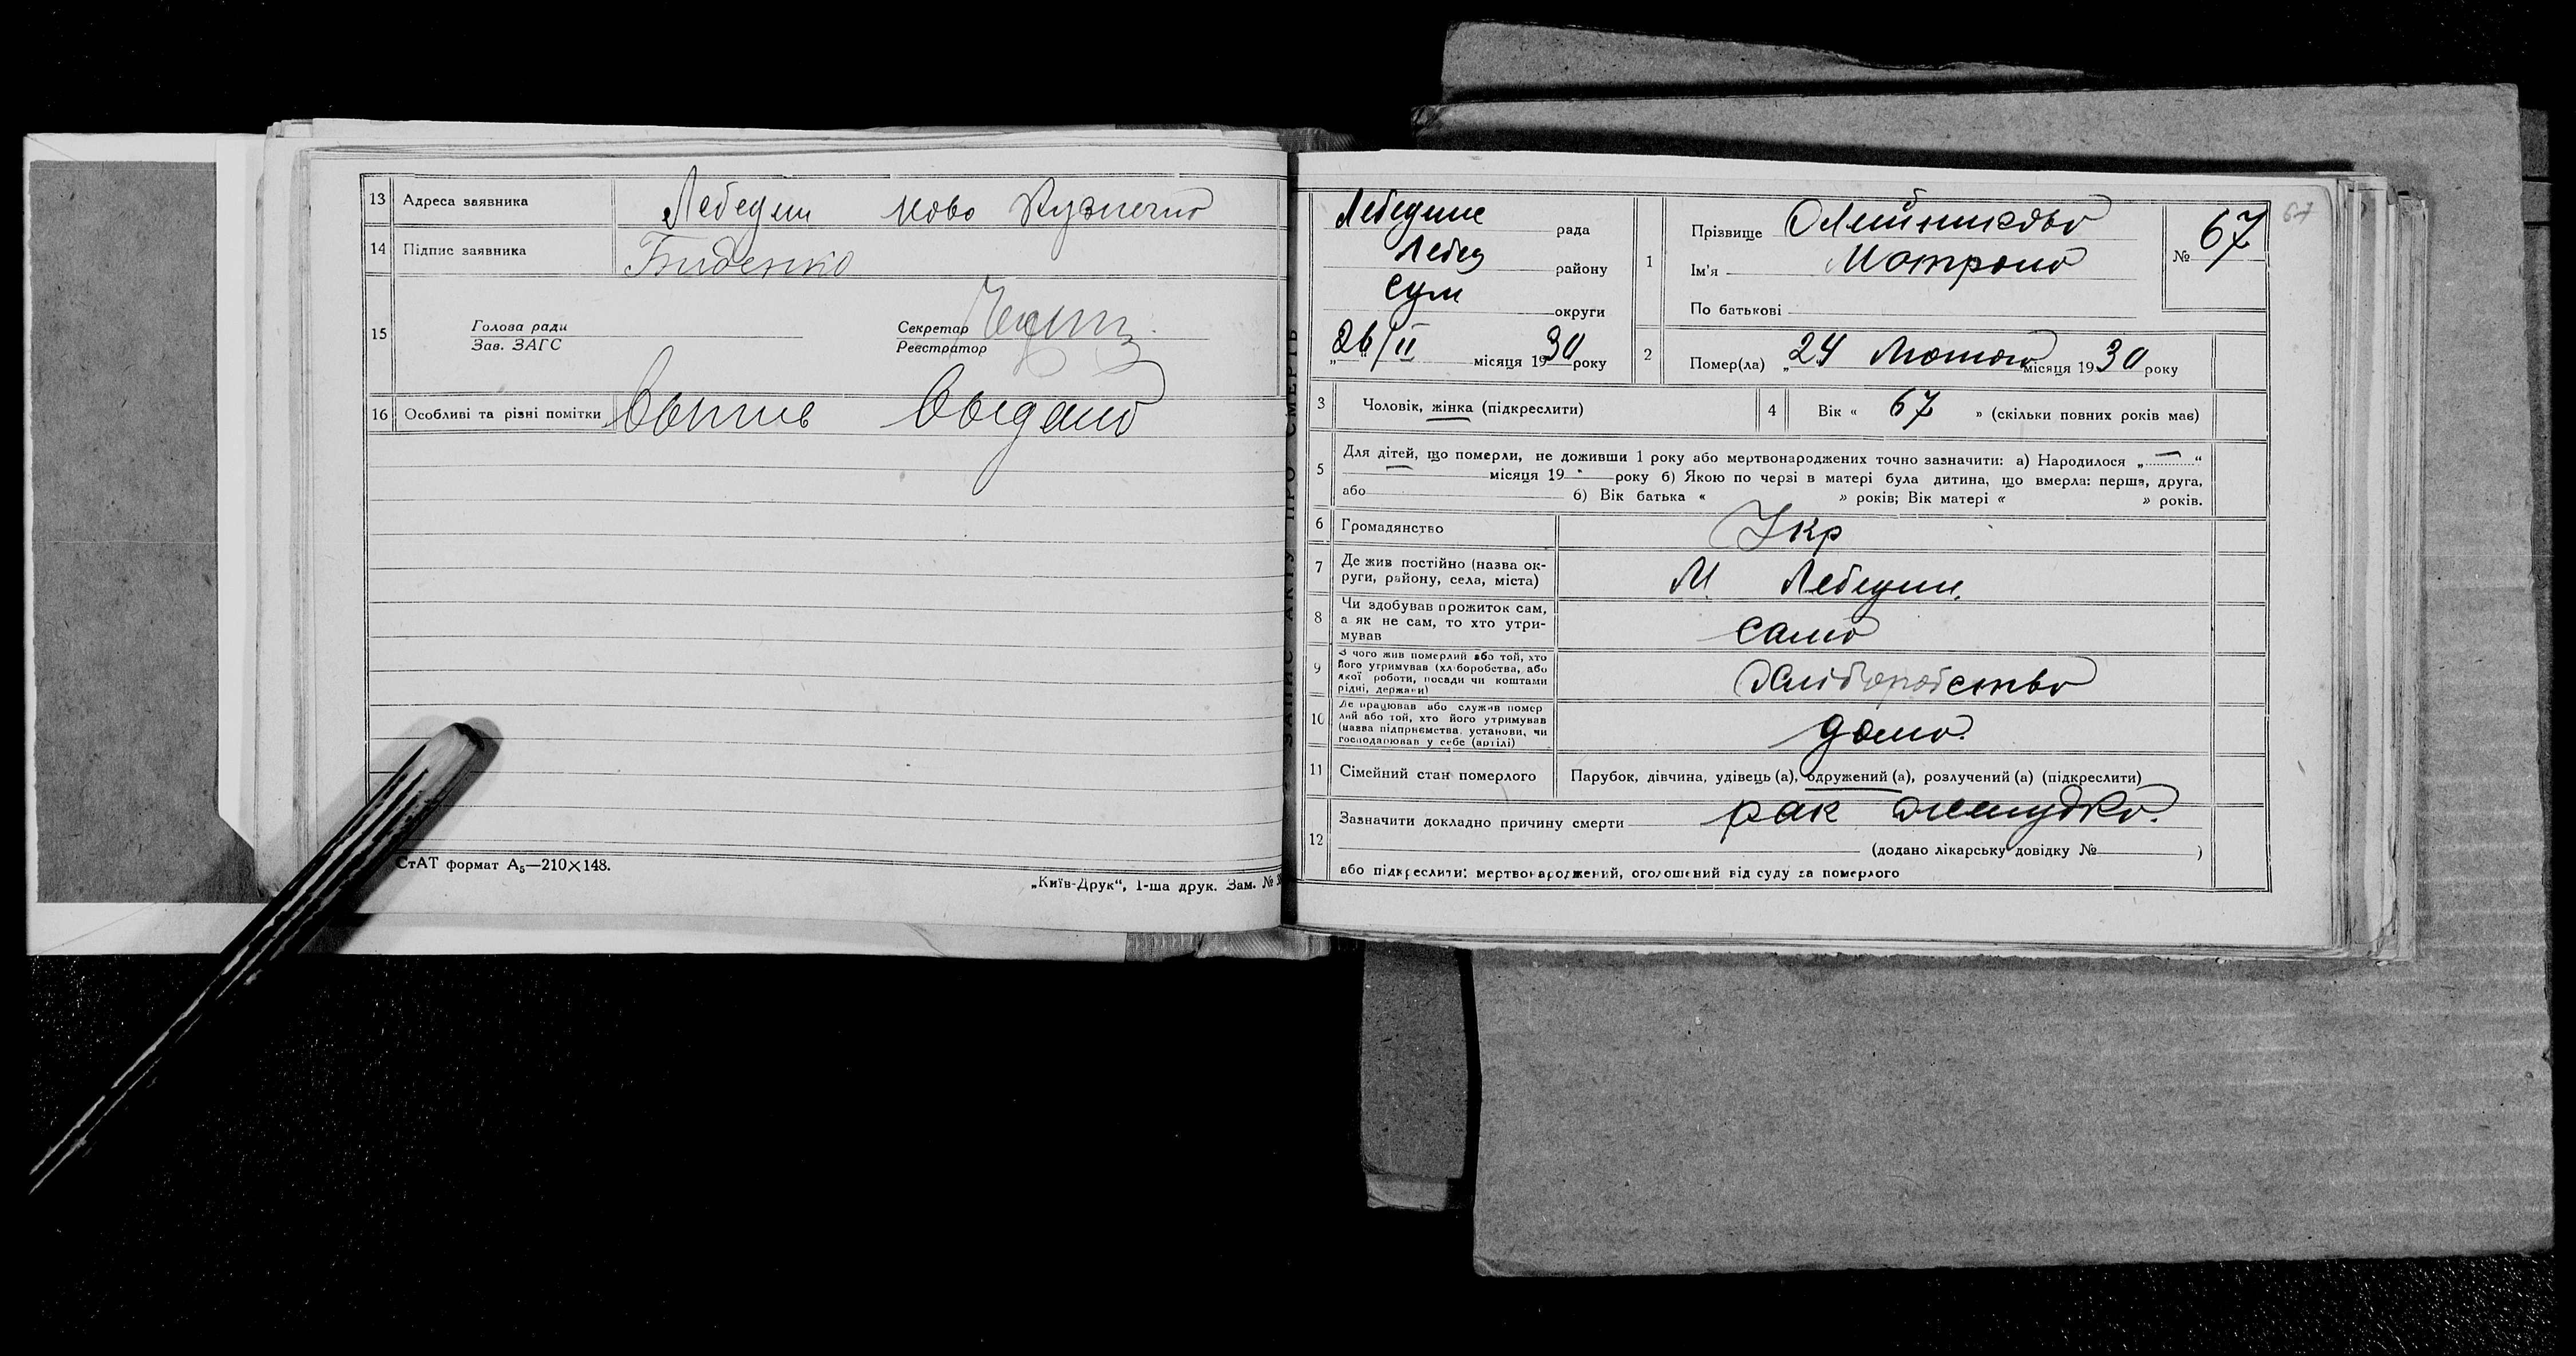 13 Адреса заявника Лебедин Ново Кузнечна
14 Підпис заявника Биденко
15 Голова ради
Зав. ЗАГС
Секретар
Реєстратор
16 Особливі та різні помітки Видано
СтАТ формат А₅—210×148.
„Київ-Друк“, 1-ша друк. Зам. №
ЗАПИС АКТУ ПРО СМЕРТЬ
67
Лебедине рада
Лебед району
Сум округи
„26/II місяця 1930 року
1 Прізвище Олейникова
Ім'я Мотрона
По батькові
№ 67
2 Помер(ла) „24 Лютого місяця 1930 року
3 Чоловік, жінка (підкреслити)
4 Вік « 67 » (скільки повних років має)
5 Для дітей, що померли, не доживши 1 року або мертвонароджених точно зазначити: а) Народилося „ — “
місяця 19 року б) Якою по черзі в матері була дитина, що вмерла: перша, друга,
або б) Вік батька « » років; Вік матері « » років.
6 Громадянство Укр
7 Де жив постійно (назва ок-
руги, району, села, міста) М. Лебедин.
8 Чи здобував прожиток сам,
а як не сам, то хто утри-
мував сама
9 З чого жив померлий або той, хто
його утримував (хліборобства, або
якої роботи, посади чи коштами
рідні, держави) Хліборобство
10 Де працював або служив помер
лий або той, хто його утримував
(назва підприємства, установи, чи
господарював у себе (артілі) дома.
11 Сімейний стан померлого Парубок, дівчина, удівець (а), одружений (а), розлучений (а) (підкреслити)
12 Зазначити докладно причину смерти рак желудка.
(додано лікарську довідку № )
або підкреслити: мертвонароджений, оголошений від суду за померлого